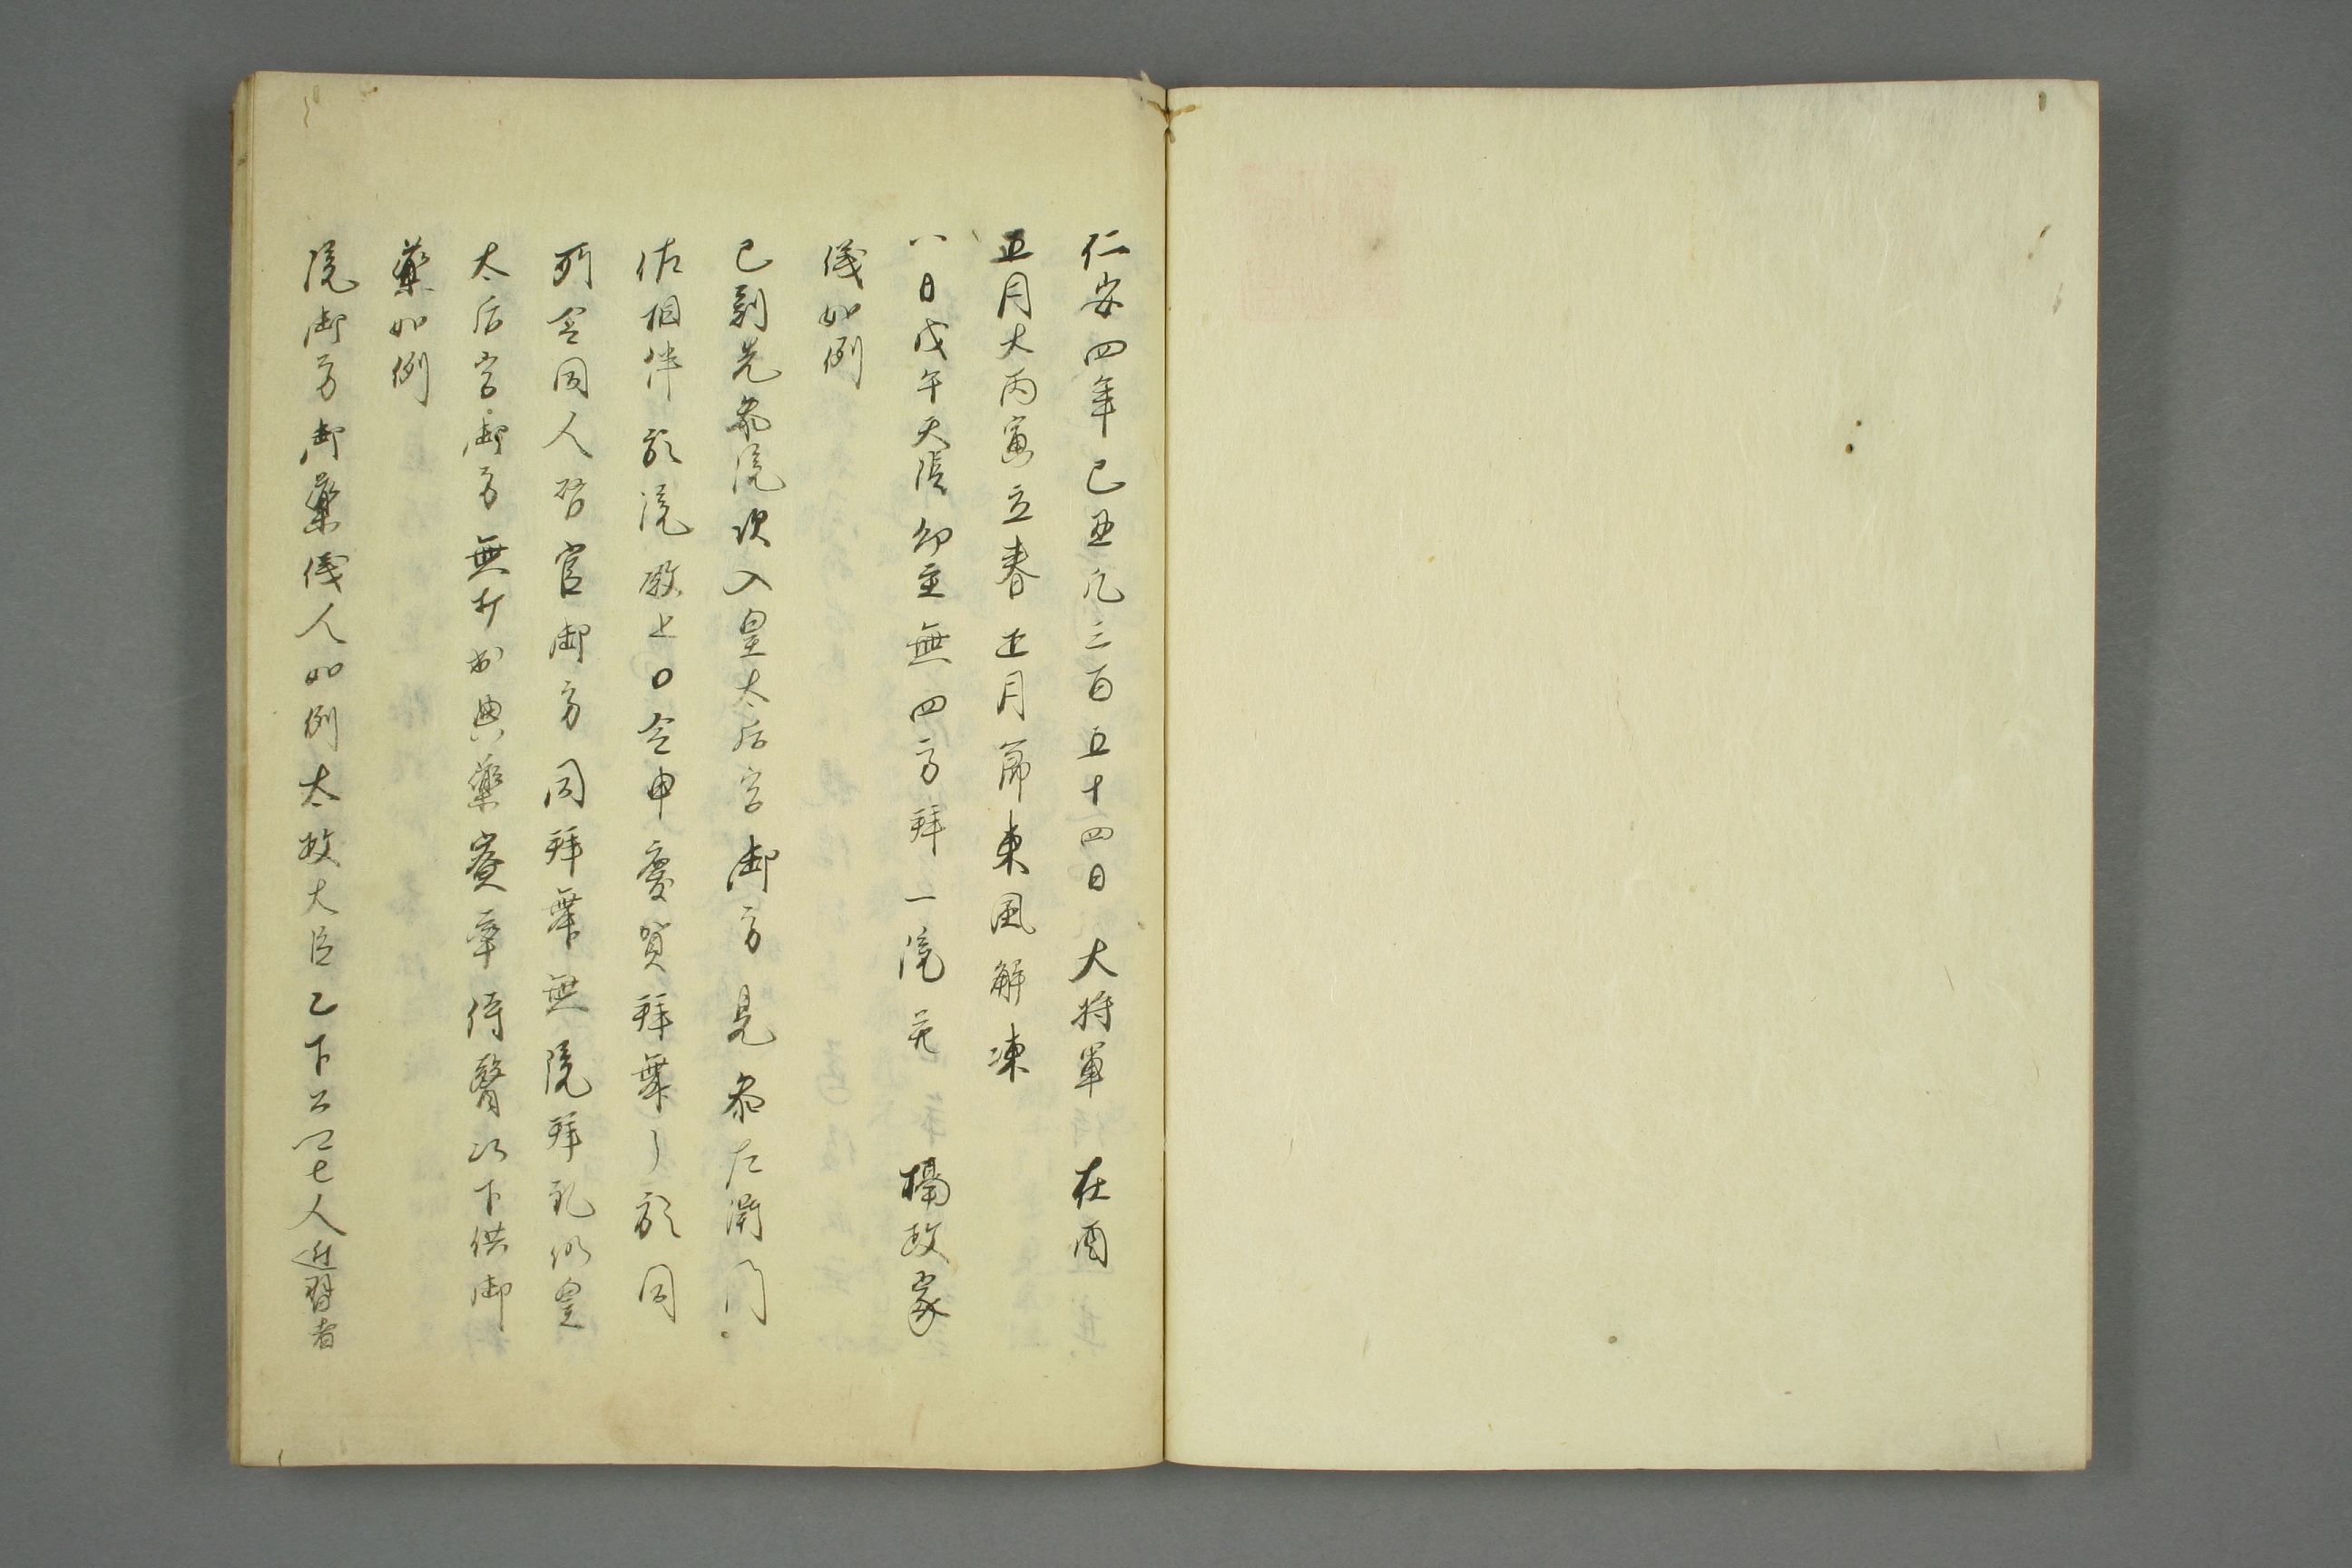 仁安四年己丑凡三百五十四日大将軍在酉
正月大丙寅立春正月節東風解凍
一日戊午天陰 無四方拝一院 摂政家
儀如例
巳剋先参院次入皇太后宮御方見参左衛門
佐相伴於院殿上口令申慶賀拝舞了於同
所令同人啓宮御方同拝舞無院拝礼仍皇
太后宮御方無 典薬寮率侍醫以下供御
薬如例
院御方御薬儀人如例太政大臣已下公卿七人近習者